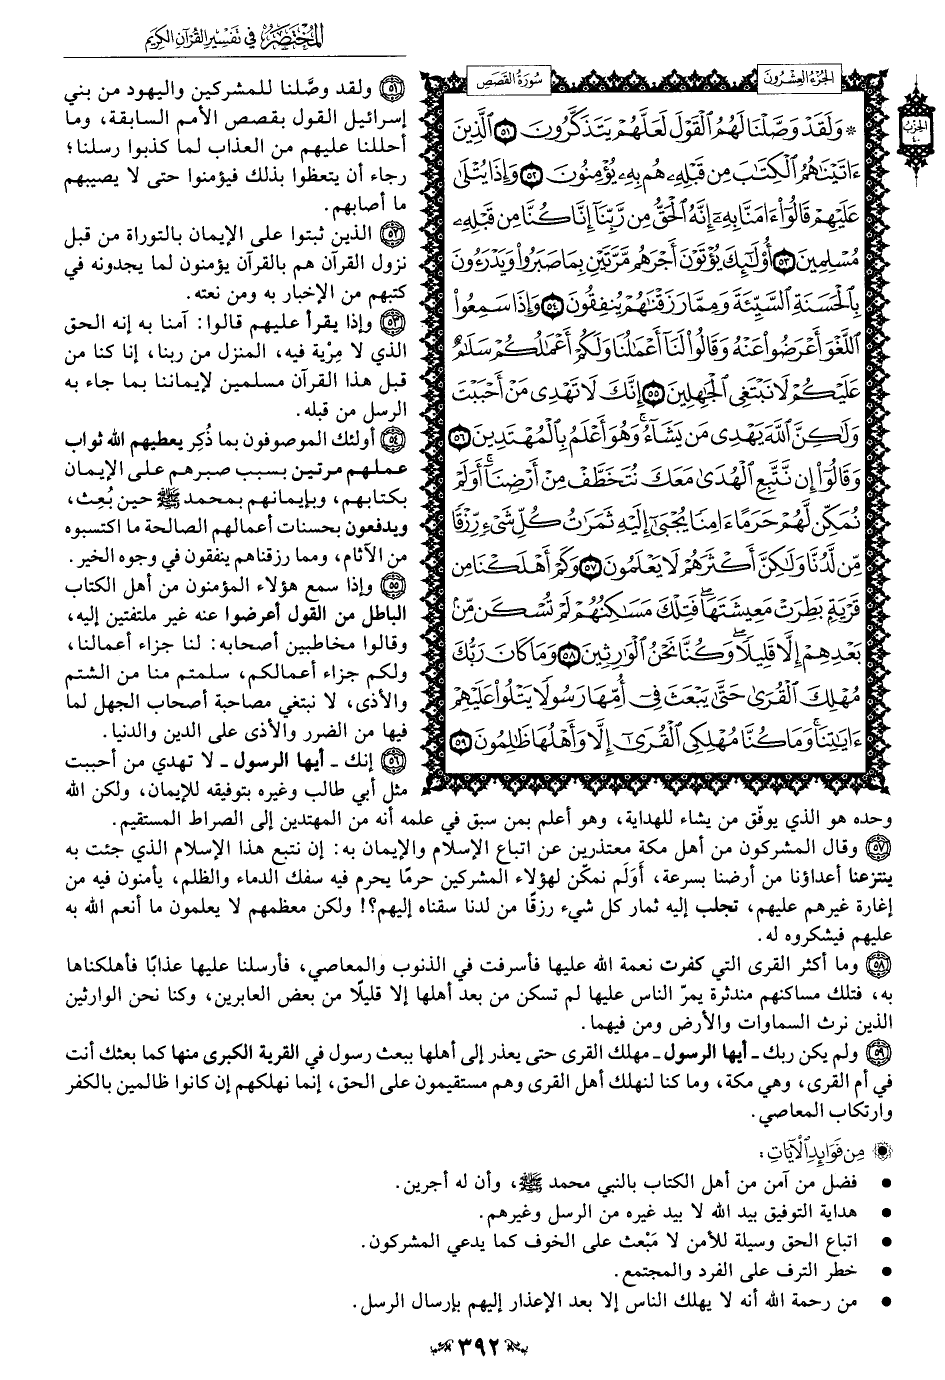 المختصر في تفسير القرآن الكريم
الجزء العشرون
سورة القصص
الحزب ٤٠
* وَلَقَدْ وَصَّلْنَا لَهُمُ ٱلْقَوْلَ لَعَلَّهُمْ يَتَذَكَّرُونَ ٥١ ٱلَّذِينَ
ءَاتَيْنَٰهُمُ ٱلْكِتَٰبَ مِن قَبْلِهِۦ هُم بِهِۦ يُؤْمِنُونَ ٥٢ وَإِذَا يُتْلَىٰ
عَلَيْهِمْ قَالُوٓا۟ ءَامَنَّا بِهِۦٓ إِنَّهُ ٱلْحَقُّ مِن رَّبِّنَآ إِنَّا كُنَّا مِن قَبْلِهِۦ
مُسْلِمِينَ ٥٣ أُو۟لَٰٓئِكَ يُؤْتَوْنَ أَجْرَهُم مَّرَّتَيْنِ بِمَا صَبَرُوا۟ وَيَدْرَءُونَ
بِٱلْحَسَنَةِ ٱلسَّيِّئَةَ وَمِمَّا رَزَقْنَٰهُمْ يُنفِقُونَ ٥٤ وَإِذَا سَمِعُوا۟
ٱللَّغْوَ أَعْرَضُوا۟ عَنْهُ وَقَالُوا۟ لَنَآ أَعْمَٰلُنَا وَلَكُمْ أَعْمَٰلُكُمْ سَلَٰمٌ
عَلَيْكُمْ لَا نَبْتَغِى ٱلْجَٰهِلِينَ ٥٥ إِنَّكَ لَا تَهْدِى مَنْ أَحْبَبْتَ
وَلَٰكِنَّ ٱللَّهَ يَهْدِى مَن يَشَآءُ ۚ وَهُوَ أَعْلَمُ بِٱلْمُهْتَدِينَ ٥٦
وَقَالُوٓا۟ إِن نَّتَّبِعِ ٱلْهُدَىٰ مَعَكَ نُتَخَطَّفْ مِنْ أَرْضِنَآ ۚ أَوَلَمْ
نُمَكِّن لَّهُمْ حَرَمًا ءَامِنًا يُجْبَىٰٓ إِلَيْهِ ثَمَرَٰتُ كُلِّ شَىْءٍ رِّزْقًا
مِّن لَّدُنَّا وَلَٰكِنَّ أَكْثَرَهُمْ لَا يَعْلَمُونَ ٥٧ وَكَمْ أَهْلَكْنَا مِن
قَرْيَةٍۭ بَطِرَتْ مَعِيشَتَهَا ۖ فَتِلْكَ مَسَٰكِنُهُمْ لَمْ تُسْكَن مِّنۢ
بَعْدِهِمْ إِلَّا قَلِيلًا ۖ وَكُنَّا نَحْنُ ٱلْوَٰرِثِينَ ٥٨ وَمَا كَانَ رَبُّكَ
مُهْلِكَ ٱلْقُرَىٰ حَتَّىٰ يَبْعَثَ فِىٓ أُمِّهَا رَسُولًا يَتْلُوا۟ عَلَيْهِمْ
ءَايَٰتِنَا ۚ وَمَا كُنَّا مُهْلِكِى ٱلْقُرَىٰٓ إِلَّا وَأَهْلُهَا ظَٰلِمُونَ ٥٩
٥١ ولقد وصَّلنا للمشركين واليهود من بني
إسرائيل القول بقصص الأمم السابقة، وما
أحللنا عليهم من العذاب لما كذبوا رسلنا؛
رجاء أن يتعظوا بذلك فيؤمنوا حتى لا يصيبهم
ما أصابهم.
٥٢ الذين ثبتوا على الإيمان بالتوراة من قبل
نزول القرآن هم بالقرآن يؤمنون لما يجدونه في
كتبهم من الإخبار به ومن نعته.
٥٣ وإذا يقرأ عليهم قالوا: آمنا به إنه الحق
الذي لا مِرْية فيه، المنزل من ربنا، إنا كنا من
قبل هذا القرآن مسلمين لإيماننا بما جاء به
الرسل من قبله.
٥٤ أولئك الموصوفون بما ذُكِر يعطيهم الله ثواب
عملهم مرتين بسبب صبرهم على الإيمان
بكتابهم، وبإيمانهم بمحمد ﷺ حين بُعِث،
ويدفعون بحسنات أعمالهم الصالحة ما اكتسبوه
من الآثام، ومما رزقناهم ينفقون في وجوه الخير.
٥٥ وإذا سمع هؤلاء المؤمنون من أهل الكتاب
الباطل من القول أعرضوا عنه غير ملتفتين إليه،
وقالوا مخاطبين أصحابه: لنا جزاء أعمالنا،
ولكم جزاء أعمالكم، سلمتم منا من الشتم
والأذى، لا نبتغي مصاحبة أصحاب الجهل لما
فيها من الضرر والأذى على الدين والدنيا.
٥٦ إنك ـ أيها الرسول ـ لا تهدي من أحببت
مثل أبي طالب وغيره بتوفيقه للإيمان، ولكن الله
وحده هو الذي يوفّق من يشاء للهداية، وهو أعلم بمن سبق في علمه أنه من المهتدين إلى الصراط المستقيم.
٥٧ وقال المشركون من أهل مكة معتذرين عن اتباع الإسلام والإيمان به: إن نتبع هذا الإسلام الذي جئت به
ينتزعنا أعداؤنا من أرضنا بسرعة، أَوَلم نمكّن لهؤلاء المشركين حرمًا يحرم فيه سفك الدماء والظلم، يأمنون فيه من
إغارة غيرهم عليهم، تجلب إليه ثمار كل شيء رزقًا من لدنا سقناه إليهم؟! ولكن معظمهم لا يعلمون ما أنعم الله به
عليهم فيشكروه له.
٥٨ وما أكثر القرى التي كفرت نعمة الله عليها فأسرفت في الذنوب والمعاصي، فأرسلنا عليها عذابًا فأهلكناها
به، فتلك مساكنهم مندثرة يمرّ الناس عليها لم تسكن من بعد أهلها إلا قليلًا من بعض العابرين، وكنا نحن الوارثين
الذين نرث السماوات والأرض ومن فيهما.
٥٩ ولم يكن ربك ـ أيها الرسول ـ مهلك القرى حتى يعذر إلى أهلها ببعث رسول في القرية الكبرى منها كما بعثك أنت
في أم القرى، وهي مكة، وما كنا لنهلك أهل القرى وهم مستقيمون على الحق، إنما نهلكهم إن كانوا ظالمين بالكفر
وارتكاب المعاصي.
من فوائد الآيات:
• فضل من آمن من أهل الكتاب بالنبي محمد ﷺ، وأن له أجرين.
• هداية التوفيق بيد الله لا بيد غيره من الرسل وغيرهم.
• اتباع الحق وسيلة للأمن لا مَبْعث على الخوف كما يدعي المشركون.
• خطر الترف على الفرد والمجتمع.
• من رحمة الله أنه لا يهلك الناس إلا بعد الإعذار إليهم بإرسال الرسل.
٣٩٢